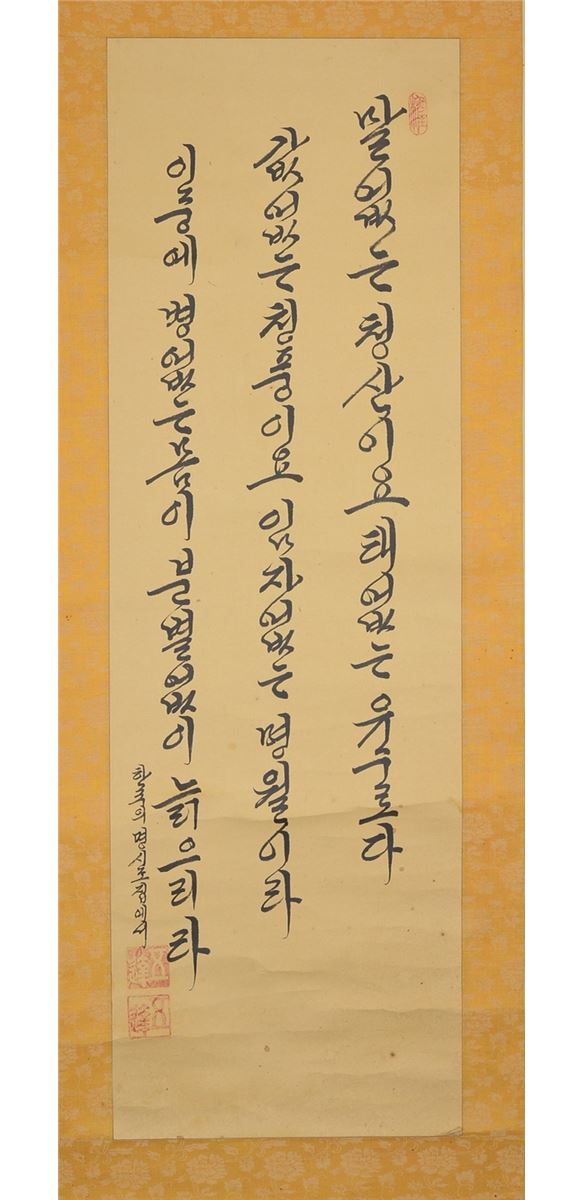 말없는 청산이요 태없는 유수로다
값없는 청풍이요 임자없는 명월이라
이중에 병없는 몸이 분별없이 늙으리라
한국의 명시조